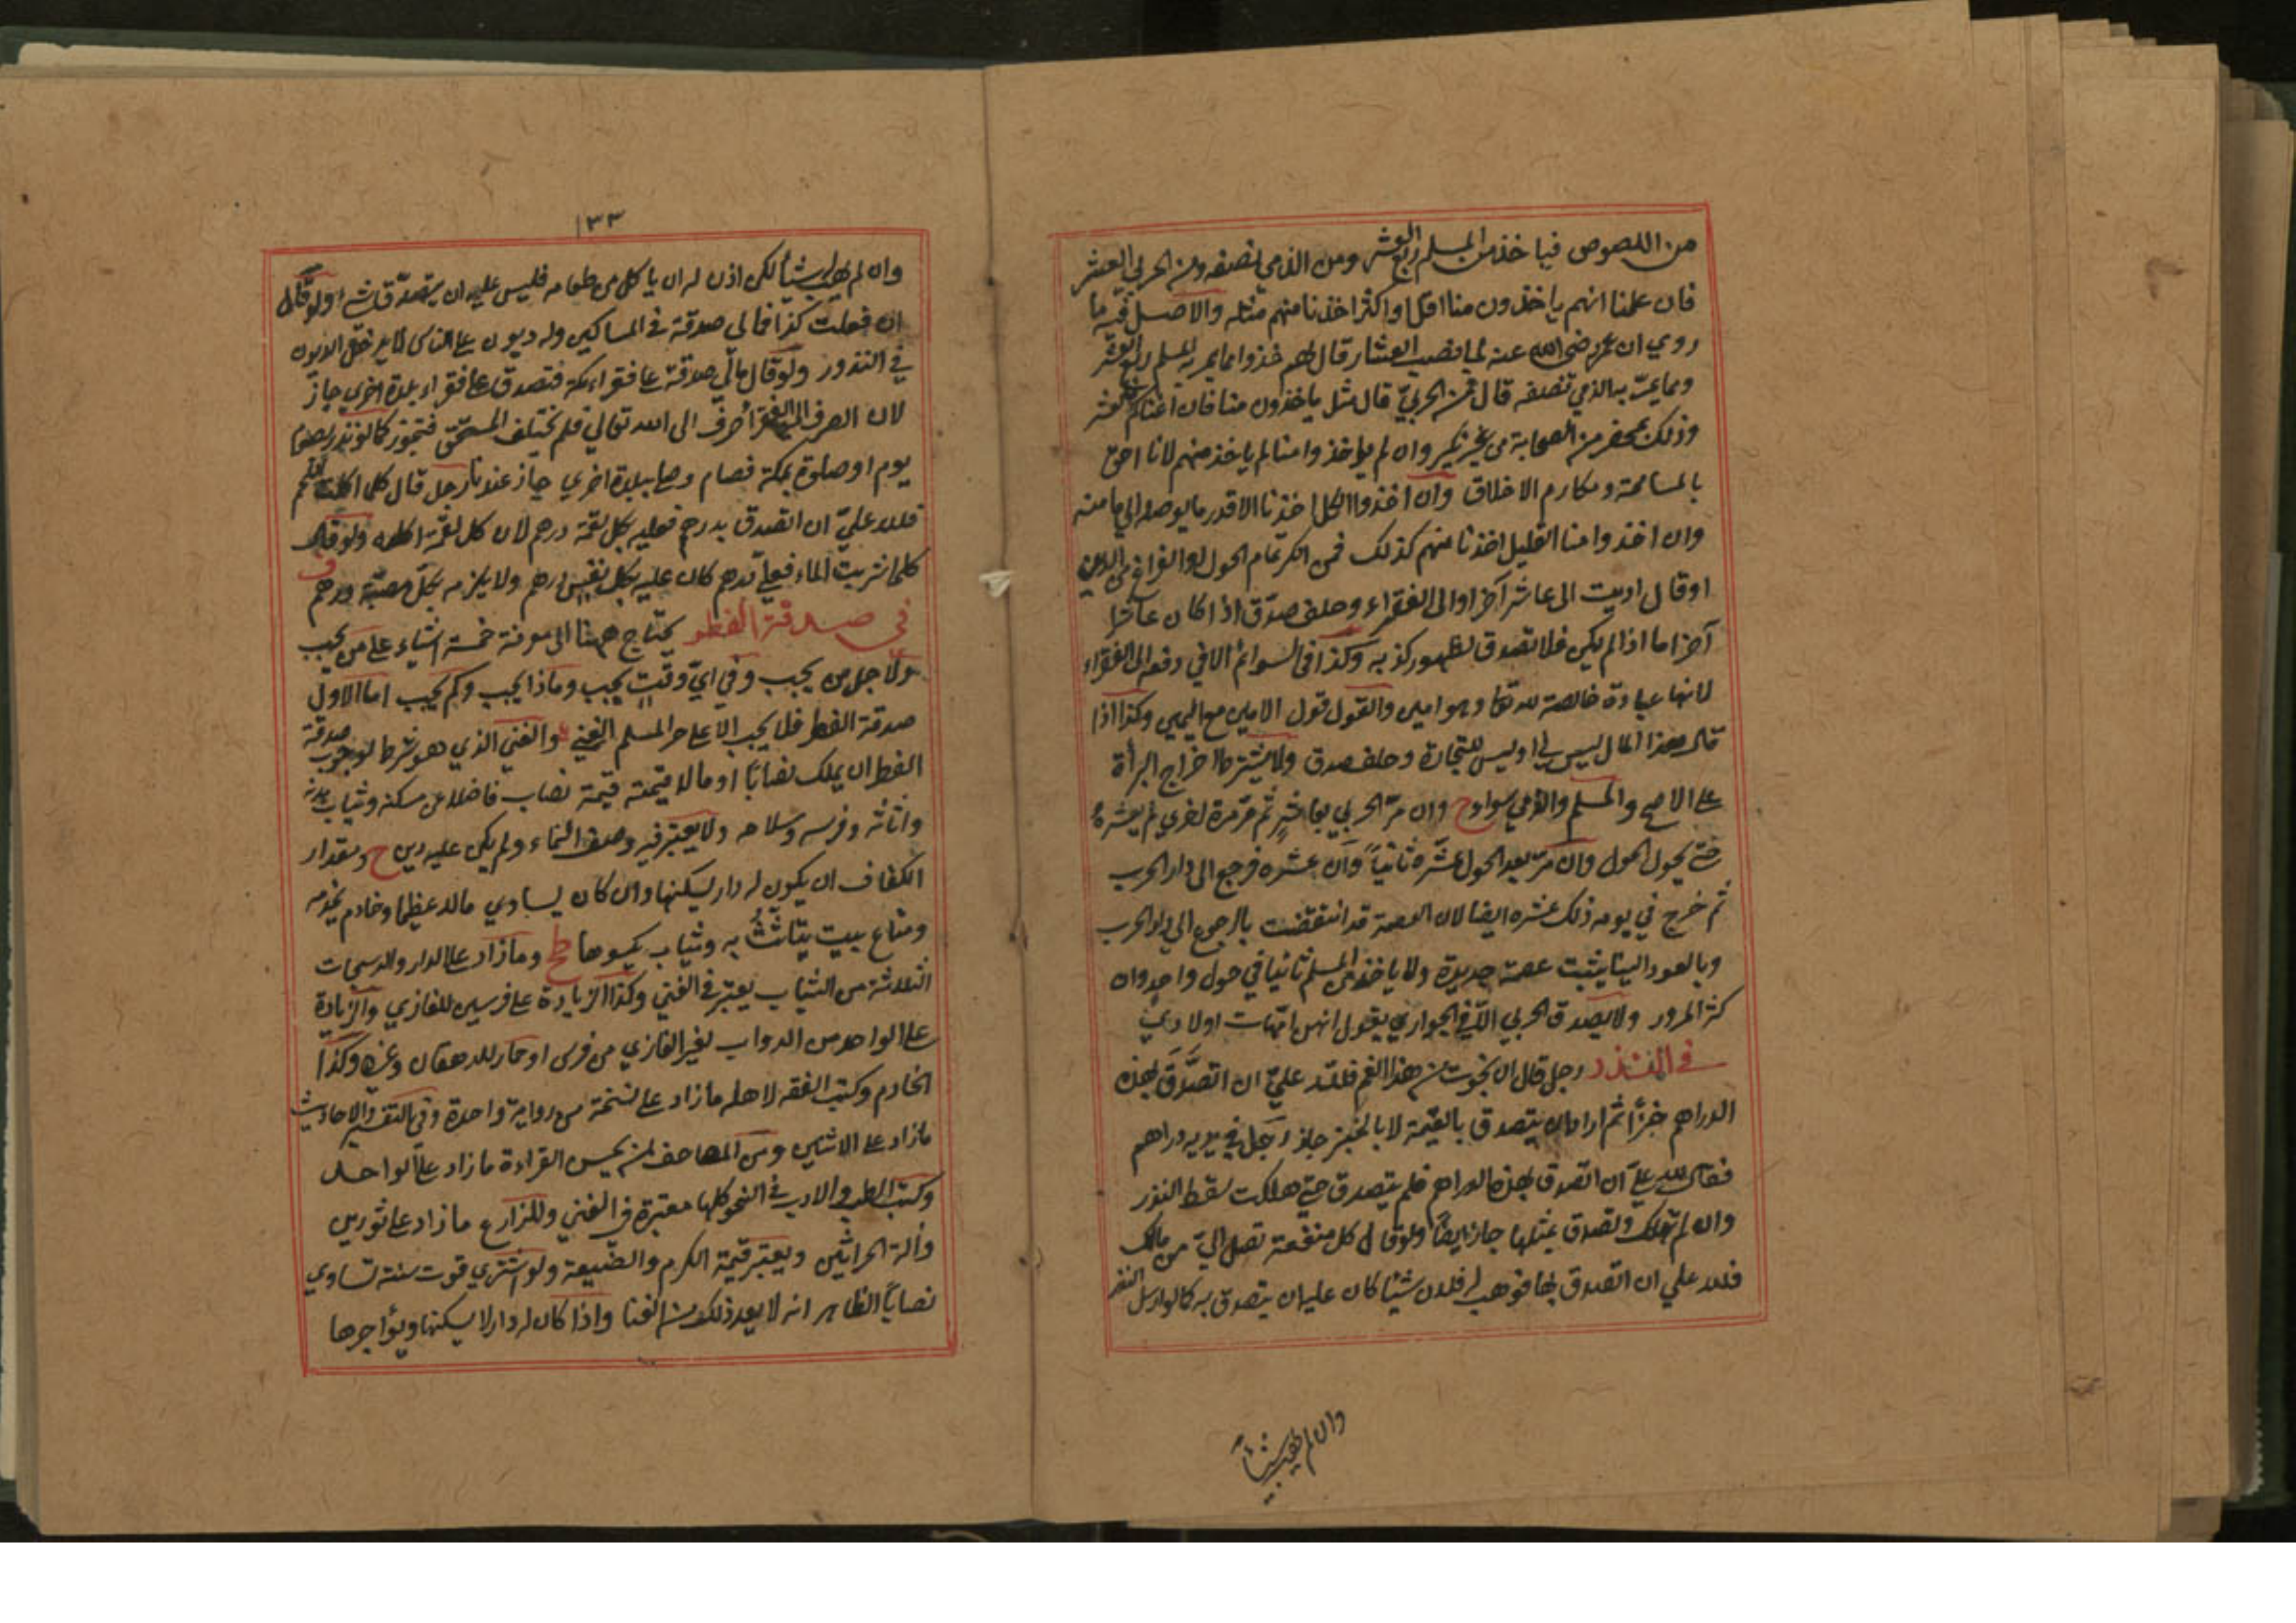 من اللصوص فياخذ من المسلم ربع العشر ومن الذمي نصفه ومن الحربي العشر
فان علمنا انهم ياخذون منا اقل او اكثر اخذنا منهم مثله والاصل فيه ما
روي ان عمر رضي الله عنه لما نصب العشار قال لهم خذوا مما يمر به المسلم ربع العشر
ومما يمر به الذمي نصفه قال فمن الحربي قال مثل ياخذون منا فان اعياكم فالعشر
وذلك بمحضر من الصحابة من غير نكير وان لم يؤخذوا منا لم ياخذ منهم لانا احق
بالمسامحة ومكارم الاخلاق وان اخذوا الكل اخذنا الا قدر ما يوصله الى مامنه
وان اخذوا منا القليل اخذنا منهم كذلك فمن انكر تمام الحول او الفراغ من الدين
او قال اديت الى عاشر آخر او الى الفقراء وحلف صدق اذا كان عاشرا
آخر اما اذا لم يكن فلا تصدق لظهور كذبه وكذا في السوائم الا في دفعه الى الفقراء
لانها عبادة خالصة لله تعا وهو امين والقول قول الامين مع اليمين وكذا اذا
قال هذا المال ليس لي او ليس للتجارة وحلف صدق ولا يشترط اخراج البرأة
على الاصح والمسلم والذمي سواء وان مر الحربي بعاشر ثم مر مرة اخرى لم يعشره
حتى يحول الحول وان مر بعد الحول عشره ثانياً وان عشره فرجع الى دار الحرب
ثم خرج في يومه ذلك عشره ايضا لان العصمة قد انتقضت بالرجوع الى دار الحرب
وبالعود الينا يثبت عصمة جديدة ولا ياخذ من المسلم ثانيا في حول واحد وان
كثر المرور ولا يصدق الحربي الا في الجواري يقول انهن امهات اولادي
في النذر رجل قال ان نجوت من هذا الغم فلله علي ان اتصدق بهذه
الدراهم خبزاً ثم اراد ان يتصدق بالقيمة لا بالخبز جاز رجل في يديه دراهم
فقال لله علي ان اتصدق بهذه الدراهم فلم يتصدق حتى هلكت سقط النذر
وان لم تهلك وتصدق بمثلها جاز ايضاً ولو قال كل منفعة تصل الي من مالك
فلله علي ان اتصدق بها فوهب له فلان شيئا كان عليه ان يتصدق به كما لو ارسل النذر
وان لم يهب شيئاً
١٣٣
وان لم يهب له شيئاً لكن اذن له ان ياكل من طعامه فليس عليه ان يتصدق بشيء ولو قال
ان فعلت كذا فمالي صدقة في المساكين وله ديون على الناس لا يدخل الديون
في النذور ولو قال مالي صدقة على فقراء مكة فتصدق على فقراء بلدة اخرى جاز
لان الصرف الى الفقراء صرف الى الله تعالى فلم يختلف المستحق فتجوز كما لو نذر بصوم
يوم او صلوة بمكة فصام وصلى ببلدة اخرى جاز عندنا رجل قال كلما اكلت لقمة
فلله علي ان اتصدق بدرهم فعليه بكل لقمة درهم لان كل لقمة اكلة ولو قال
كلما شربت الماء فعلي درهم كان عليه بكل نفس درهم ولا يلزمه بكل مصة درهم
في صدقة الفطر يحتاج ههنا الى معرفة خمسة اشياء على من يجب
ولاجل من يجب وفي اي وقت يجب وماذا يجب وكم يجب اما الاول
صدقة الفطر فلا يجب الا على حر المسلم الغني والغني الذي هو شرط لوجوب صدقة
الفطر ان يملك نصاباً او مالا قيمته قيمة نصاب فاضلا عن مسكنه وثياب بدنه
واثاثه وفرسه وسلاحه ولا يعتبر فيه وصف النماء ولم يكن عليه دين ح ومقدار
الكفاف ان يكون له دار يسكنها وان كان يساوي مالا عظيما وخادم يخدمه
ومتاع بيت يتاثث به وثياب يكسوها ط وما زاد على الدار والدسبجات
الثلاثة من الثياب يعتبر في الغنى وكذا الزيادة على فرسين للغازي والزيادة
على الواحد من الدواب لغير الغازي من فرس او حمار للدهقان وغيره وكذا
الخادم وكتب الفقه لاهله ما زاد على نسخة من رواية واحدة وفي التفسير والاحاديث
ما زاد على الاثنين ومن المصاحف لمن يحسن القراءة ما زاد على الواحد
وكتب الطب والادب في النحو كلها معتبرة في الغنى وللمزارع ما زاد على ثورين
وآلة الحراثين ويعتبر قيمة الكرم والضيعة ولو اشترى قوت سنة تساوي
نصاباً الظاهر انه لا يعد ذلك من الغنا واذا كان له دار لا يسكنها ويؤاجرها